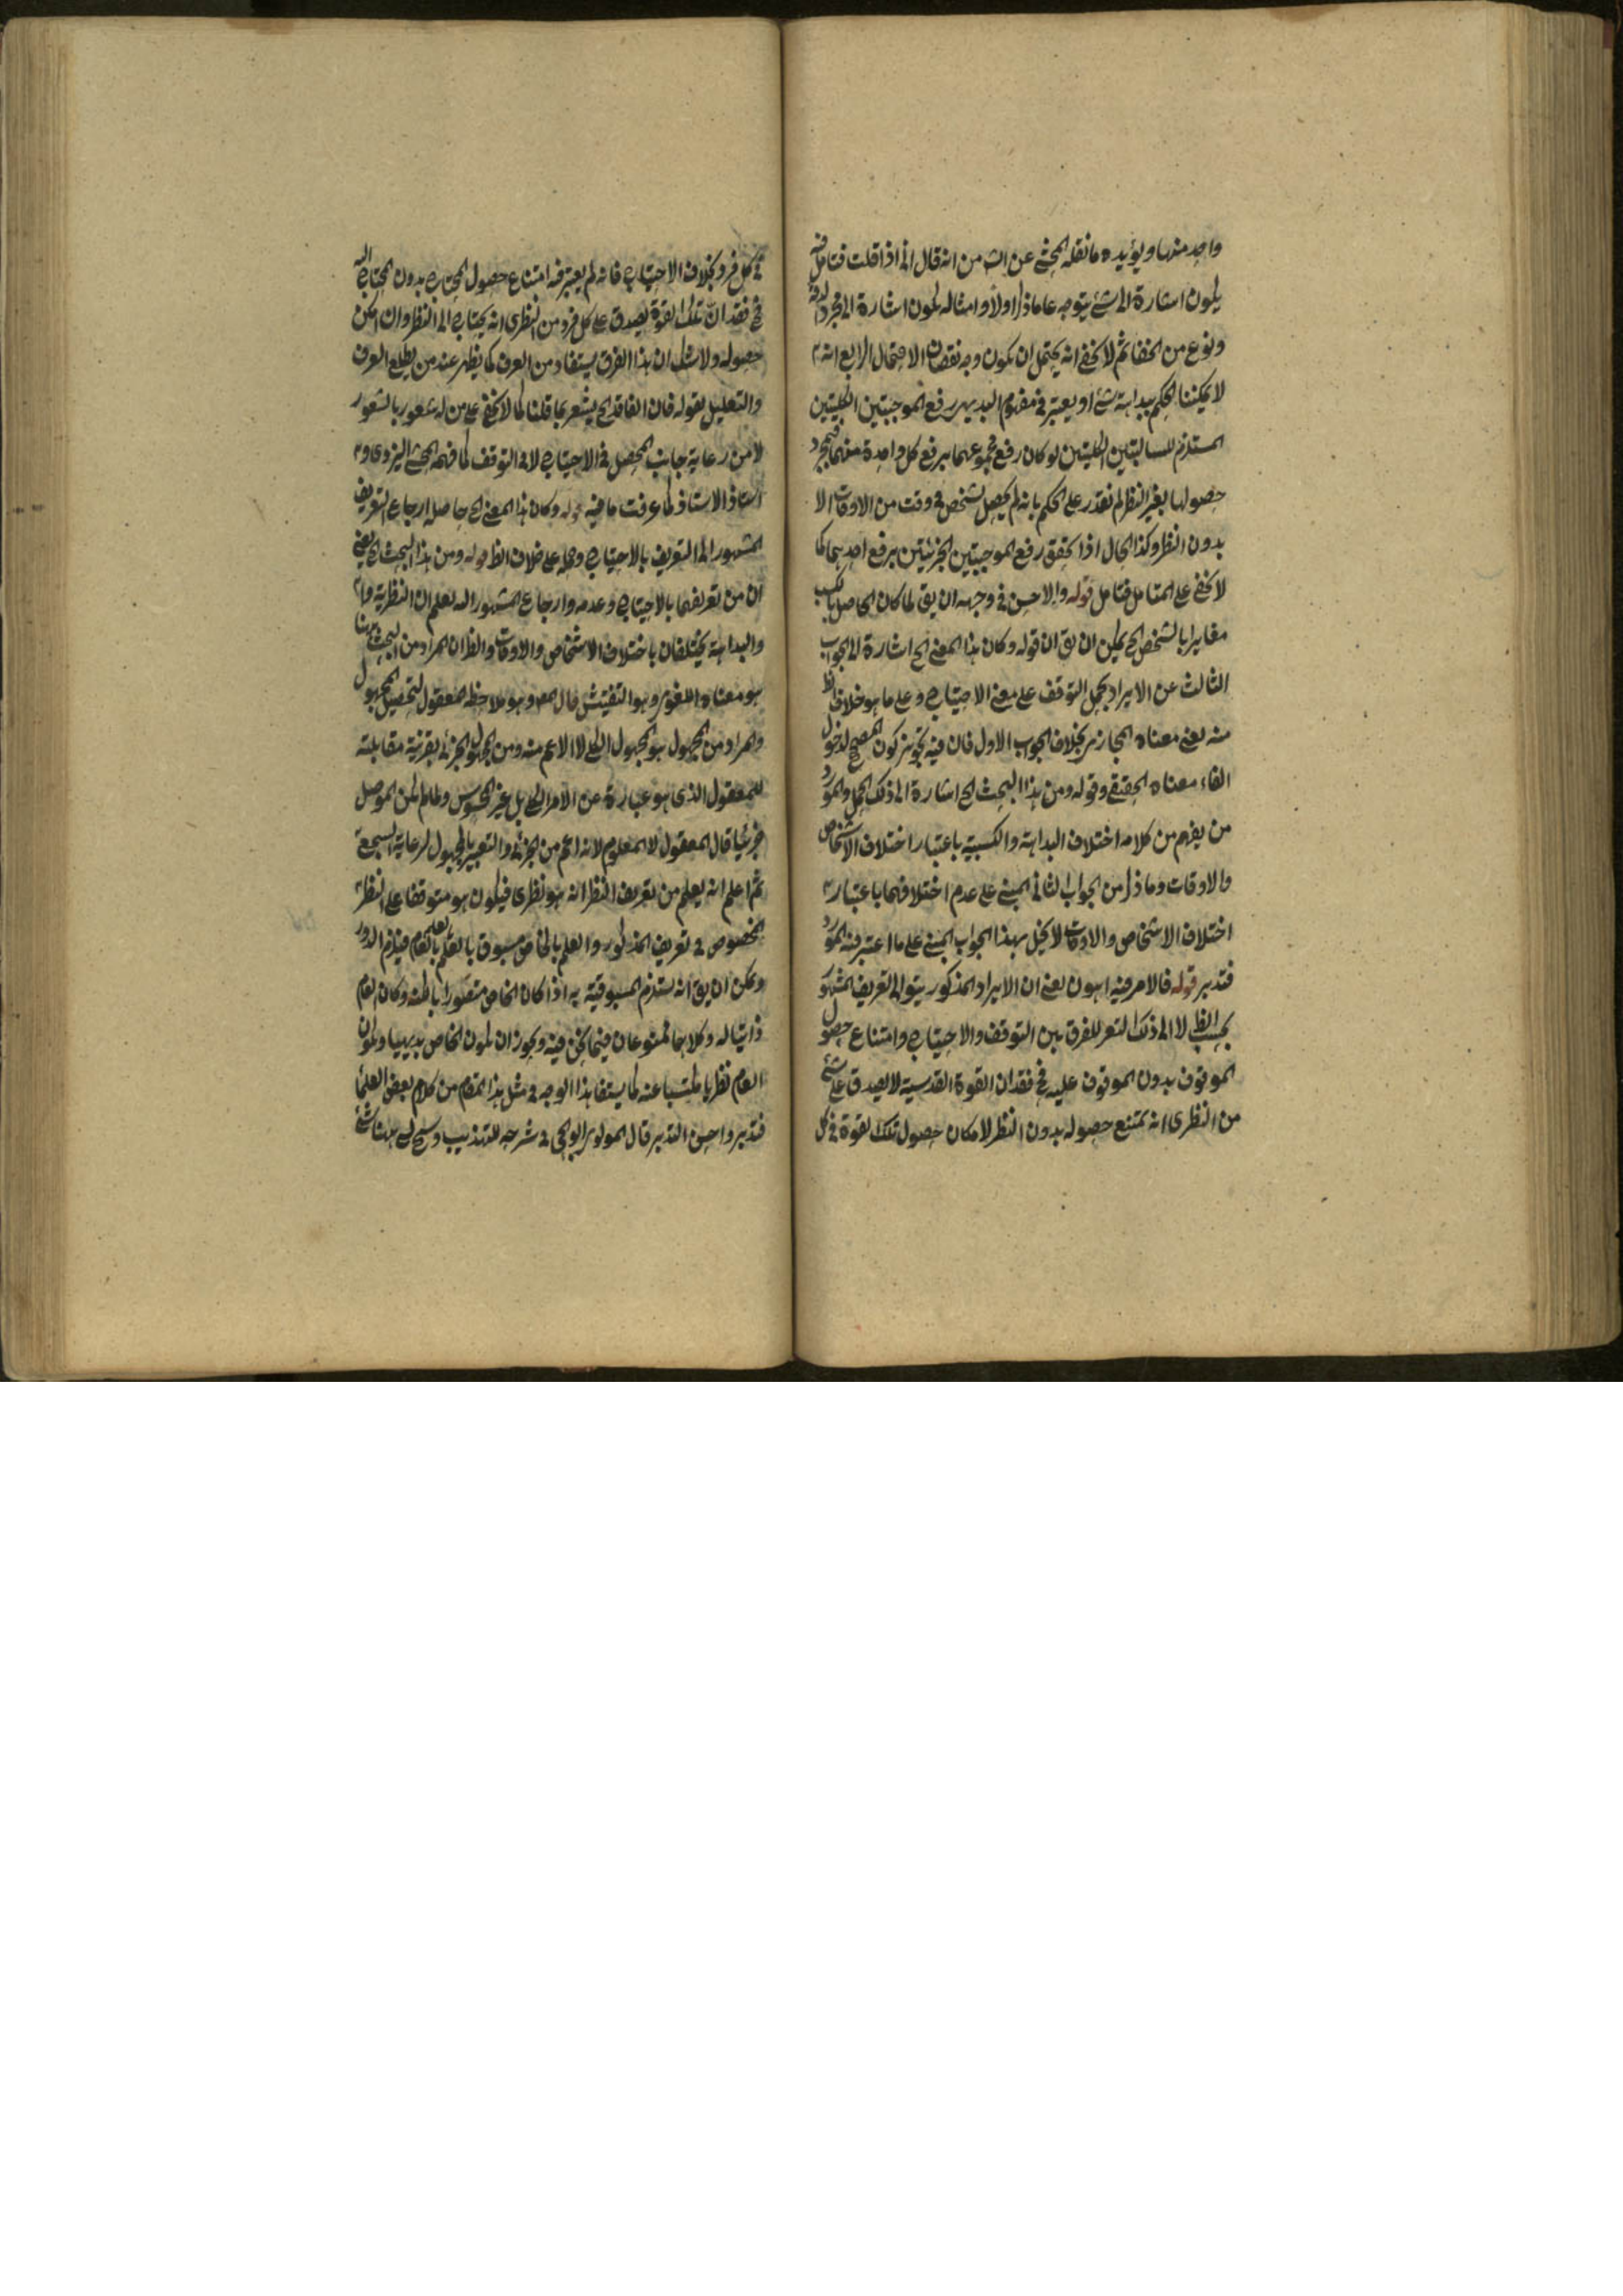 واحد منها ويؤيده ما نقله المحشي عن الشه من انه قال اني اذا قلت فتامل فيه
يكون اشارة الى شئ يتوجه على ما ذكر اولا وامثاله يكون اشارة الى مجرد الدقة
ونوع من الخفا ثم لا يخفى انه يحتمل ان يكون وجه نقصان الاحتمال الرابع انه
لا يمكننا الحكم ببداهة شئ او يعتبر في مفهوم البديهي رفع الموجبتين الكليتين
المستلزم للسالبتين الكليتين لو كان رفع مجموعهما برفع كل واحدة منهما فبمجرد
حصولها بغير النظر لم نقدر على الحكم بانه لم يحصل لشخص في وقت من الاوقات الا
بدون النظر وكذا الحال اذا تحقق رفع الموجبتين الجزئيتين برفع احديهما كما
لا يخفى على المتامل فتامل قوله والاحسن في وجهه ان يق لما كان الحاصل بالكسب
مغايرا بالشخص الخ يمكن ان يق ان قوله وكان هذا المعنى الخ اشارة الى الجواب
الثالث عن الايراد بحمل التوقف على معنى الاحتياج وعلى ما هو خلاف الظ
منه يعني معناه المجازي بخلاف الجواب الاول فان فيه تجويز كون المصحح لدخول
الفاء معناه الحقيقي وقوله ومن هذا البحث الخ اشارة الى ذلك الحمل والمورد
من يفهم من كلامه اختلاف البداهة والكسبية باعتبار اختلاف الاشخاص
والاوقات وما ذكر من الجواب الثاني المبني على عدم اختلافهما باعتبار
اختلاف الاشخاص والاوقات لا يخل بهذا الجواب المبني على ما اعتبر فيه المورد
فتدبر قوله فالامر فيه اهون يعني ان الايراد المذكور يتو الى التعريف المشهور
بحسب الظ لا الى ذلك التعر للفرق بين التوقف والاحتياج وامتناع حصول
الموقوف بدون الموقوف عليه في فقدان القوة القدسية لا يصدق على شئ
من النظري انه يمتنع حصوله بدون النظر لامكان حصول تلك القوة في كل
في كل فرد بخلاف الاحتياج فانه لم يعتبر فيه امتناع حصول المحتاج بدون المحتاج اليه
في فقدان تلك القوة يصدق على كل فرد من النظري انه يحتاج الى النظر وان امكن
حصوله ولا شك ان هذا الفرق يستفاد من العرف كما يظهر عند من يطلع العرف
والتعليل بقوله فان الفاقد الخ يشعر بما قلنا كما لا يخفى على من له شعور بالشعور
لا من رعاية جانب المحصل في الاحتياج لا في التوقف كما فهمه المحشي اليزدي و
استاذ الاستاذ كما عرفت ما فيه قوله وكان هذا المعنى الخ حاصله ارجاع التعريف
المشهور الى التعريف بالاحتياج وحمله على خلاف الظ قوله ومن هذا البحث الخ يعني
ان من تعريفهما بالاحتياج وعدمه وارجاع المشهور اليه يعلم ان النظرية
والبداهة يختلفان باختلاف الاشخاص والاوقات والظ ان المراد من البحث ههنا
هو معناه اللغوي وهو التفتيش قال المصه وهو ملاحظة المعقول لتحصيل المجهول
والمراد من المجهول هو المجهول الكلي لا الاعم منه ومن المجهول الجزئي بقرينة مقابلته
للمعقول الذي هو عبارة عن الامر الكلي بل غير المحسوس ولما لم يكن الموصل
جزئيا قال المعقول لا المعلوم لانه اعم من الجزئي والتعبير بالمجهول لرعاية السجع
ثم اعلم انه يعلم من تعريف النظر انه هو نظري فيكون هو متوقفا على النظر
المخصوص في تعريف المذكور والعلم بالخاص مسبوق بالعلم بالعام فيلزم الدور
ويمكن ان يق انه يستلزم المسبوقية به اذا كان الخاص متصورا بالكنه وكان العام
ذاتيا له وكلاهما ممنوعان فيما نحن فيه ويجوز ان يكون الخاص بديهيا ويكون
العام نظريا مكتسبا عنه كما يستفاد هذا الوجه في مثل هذا المقام من كلام بعض العلما
فتدبر واحسن التدبر قال المولوي ابو الحي في شرحه للتهذيب وسنح لي ههنا شئ